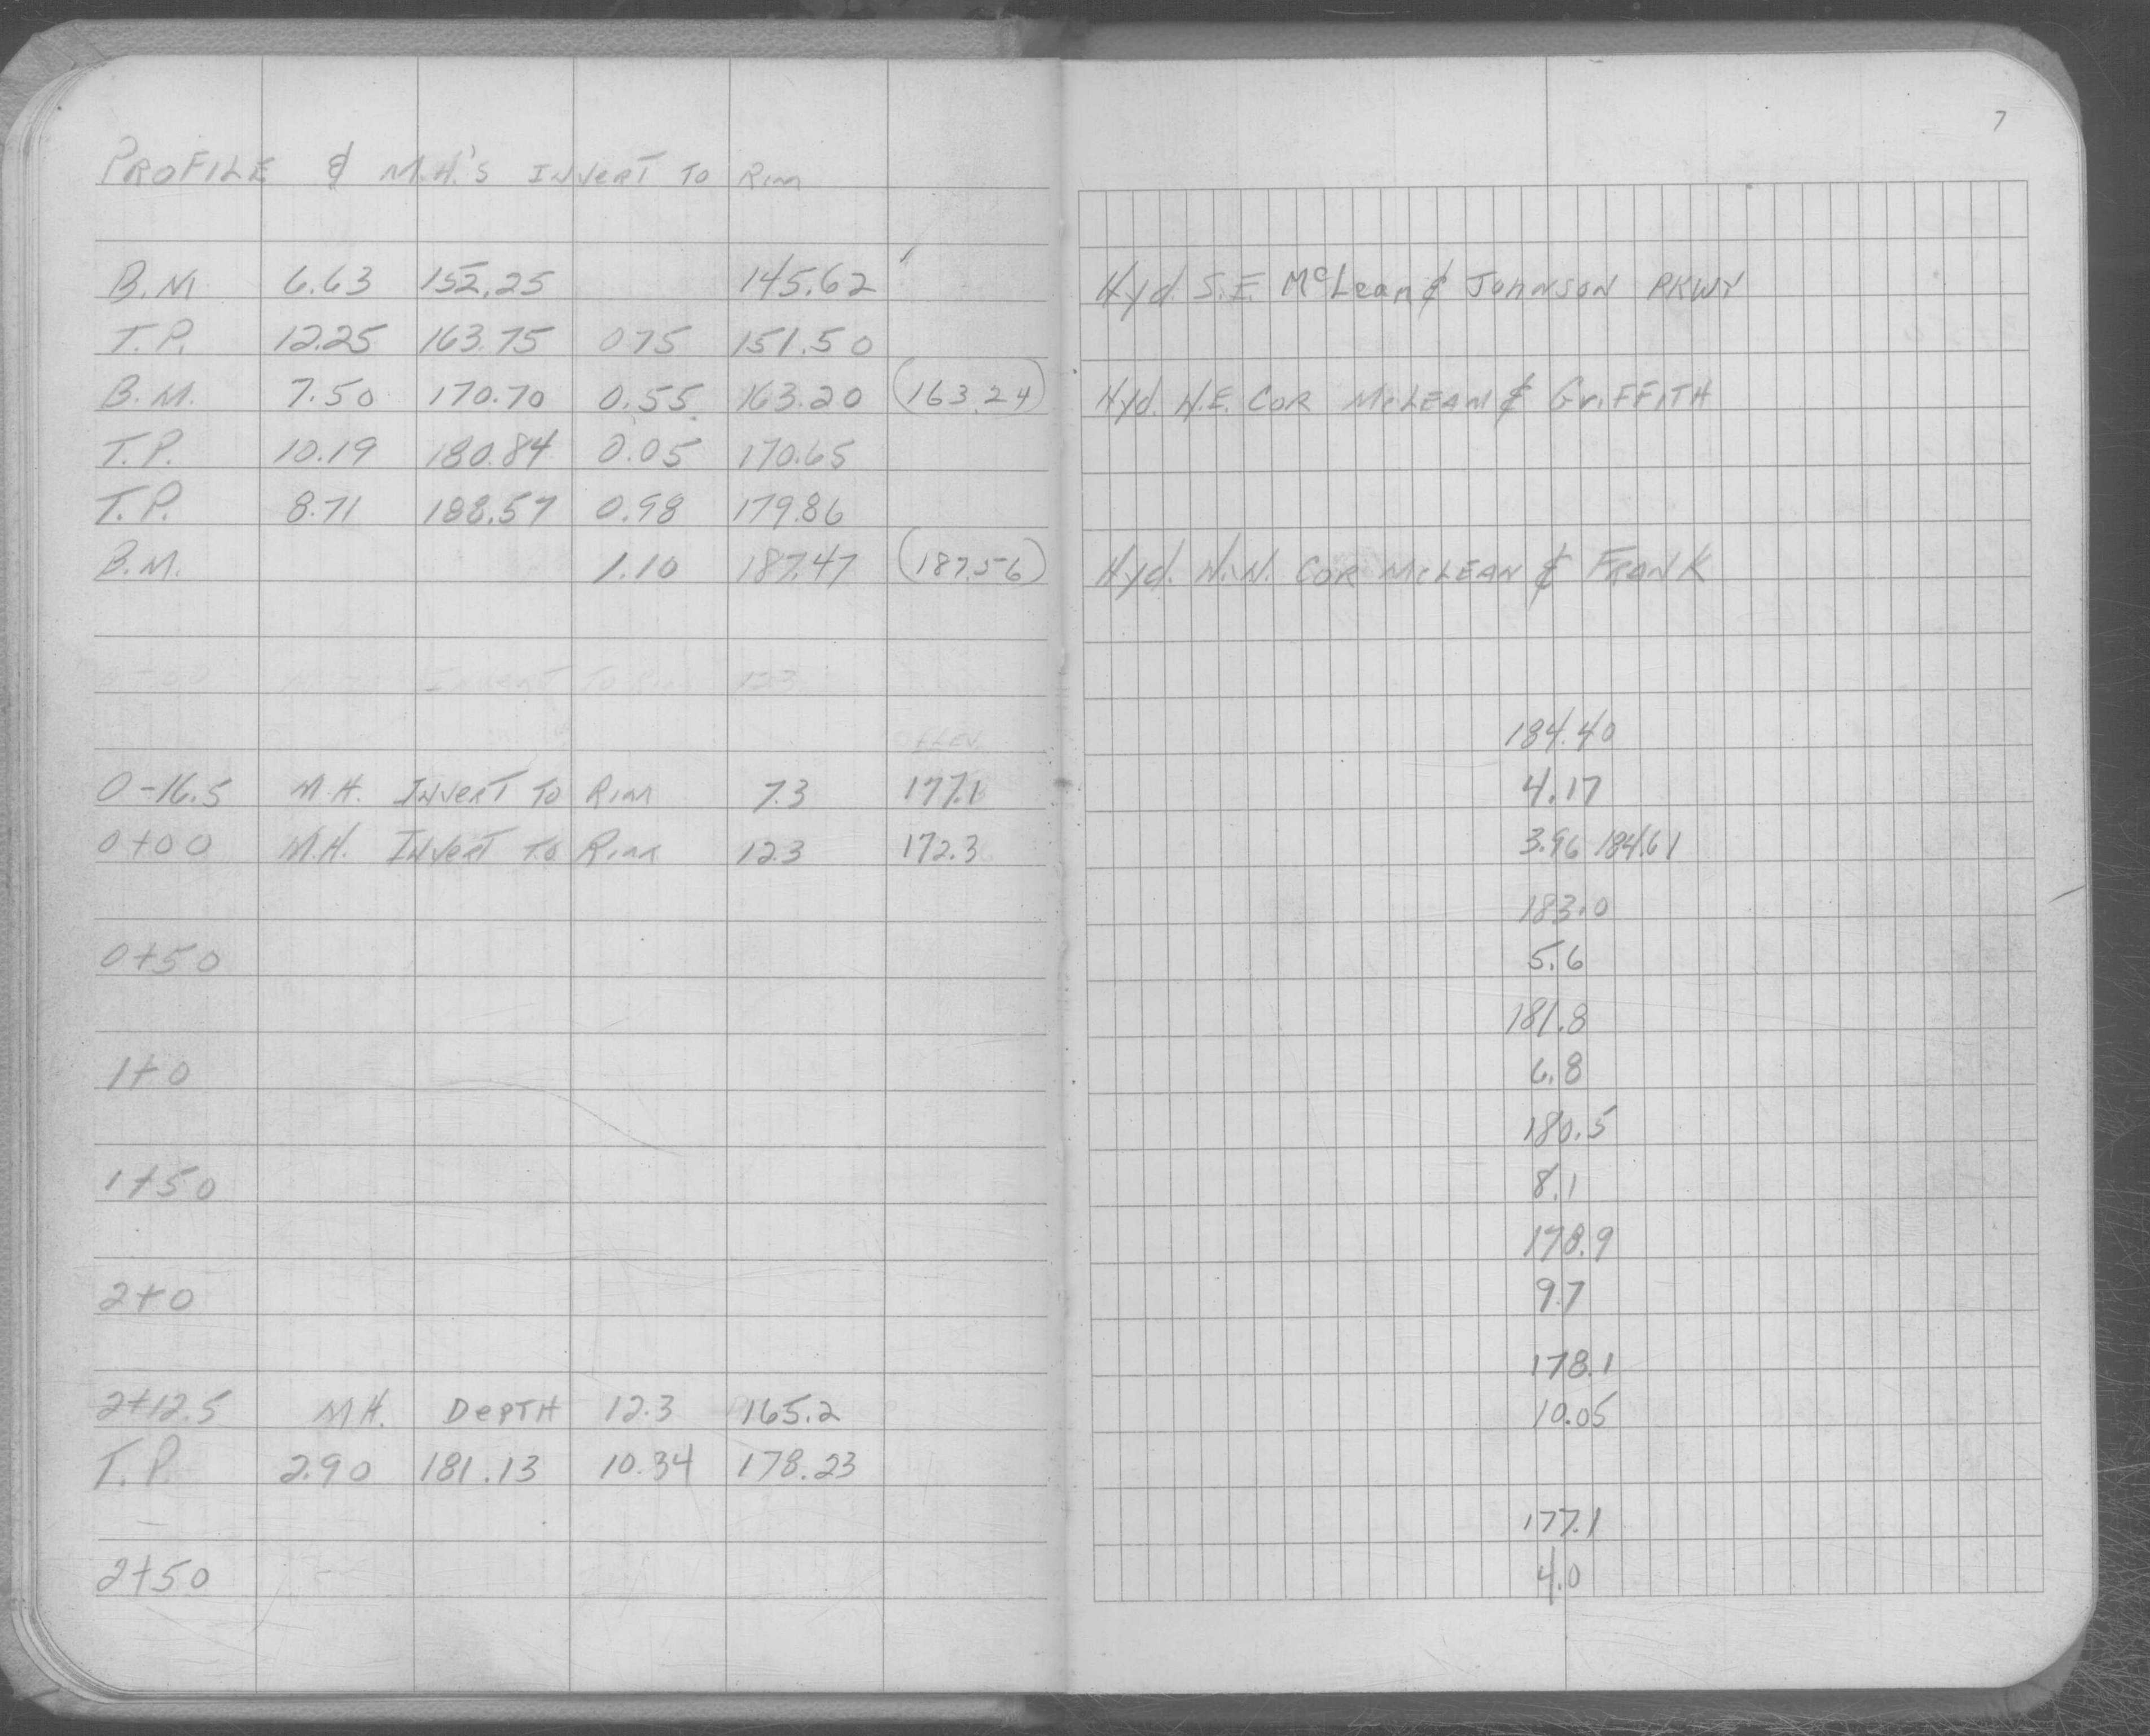 7
PROFILE & M.H.'S INVERT TO RIM
B.M. 6.63 152.25 145.62 Hyd. S.E. McLean & JOHNSON PKWY
T.P. 12.25 163.75 0.75 151.50
B.M. 7.50 170.70 0.55 163.20 (163.24) Hyd. N.E. COR McLEAN & GriFFITH
T.P. 10.19 180.84 0.05 170.65
T.P. 8.71 188.57 0.98 179.86
B.M. 1.10 187.47 (187.56) Hyd. N.W. COR McLEAN & FRANK
INVERT TO RIM 12.3
ELEV. 184.40
0-16.5 M.H. INVERT TO RIM 7.3 177.1 4.17
0+00 M.H. INVERT TO RIM 12.3 172.3 3.96 184.61
183.0
0+50 5.6
181.8
1+0 6.8
180.5
1+50 8.1
178.9
2+0 9.7
178.1
2+12.5 M.H. DEPTH 12.3 165.2 10.05
T.P. 2.90 181.13 10.34 178.23
177.1
2+50 4.0